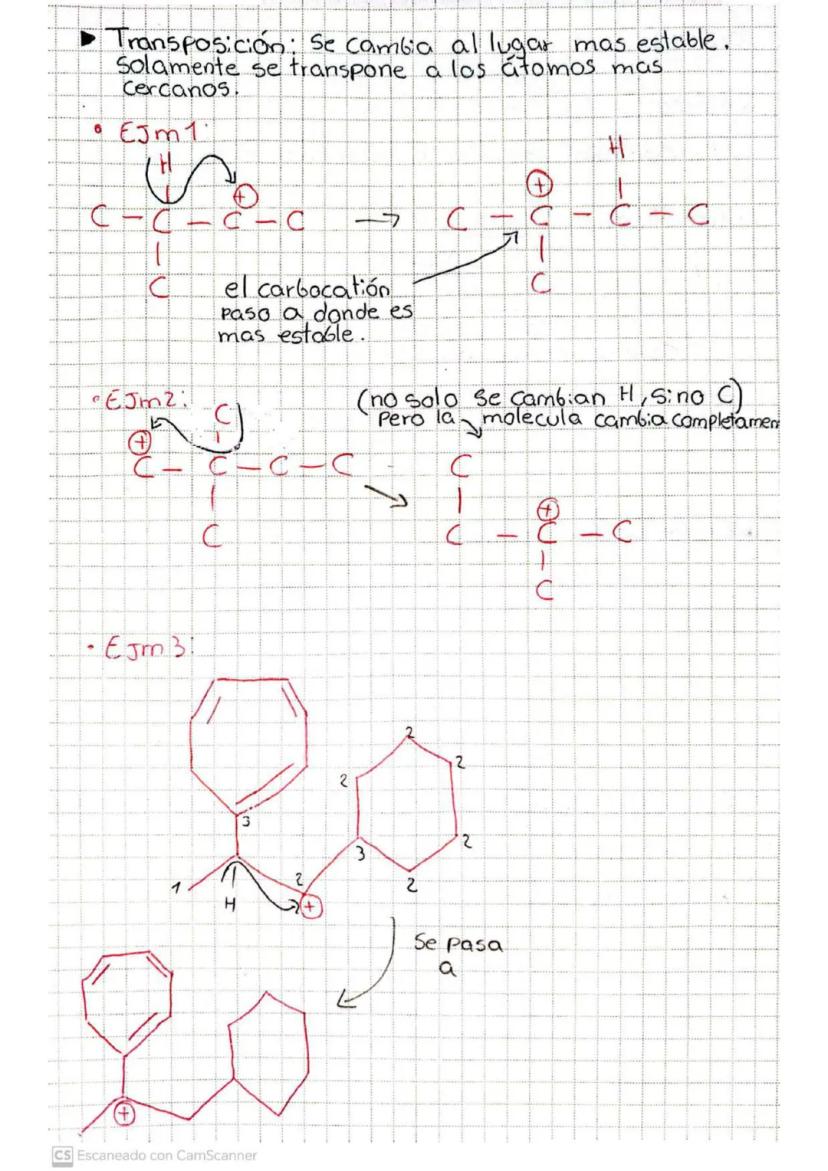 ▶ Transposición: Se cambia al lugar mas estable.
Solamente se transpone a los átomos mas
cercanos.
• EJm1:
H
H
+
+
C - C - C - C → C - C - C - C
C
C
el carbocatión
paso a donde es
mas estable.
• EJm2:
(no solo se cambian H, sino C)
Pero la molecula cambia completamen
C
+
C - C - C - C
C
C
+
C - C - C
C
C
• EJm3:
2
2
2
3
2
3
2
2
1
H
+
Se pasa
a
+
CS Escaneado con CamScanner